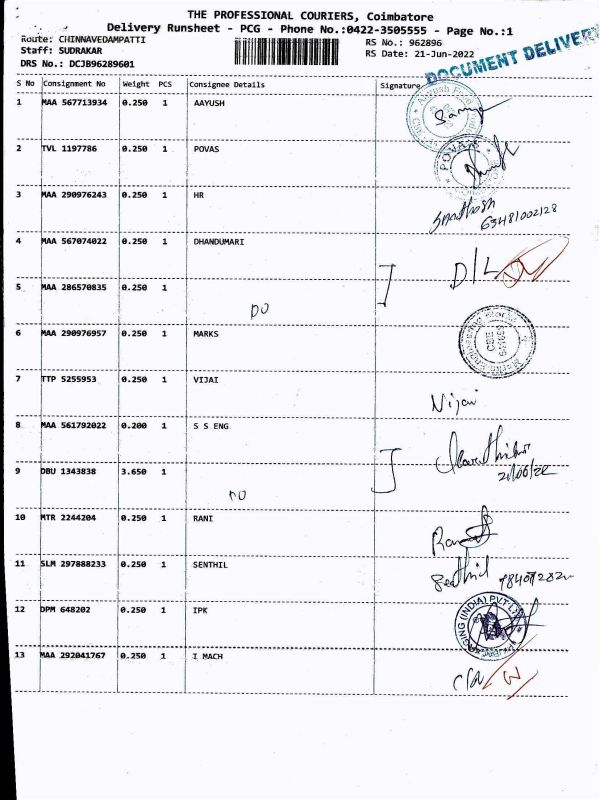 THE PROFESSIONAL COURIERS, Coimbatore
Delivery Runsheet - PCG - Phone No.:0422-3505555 - Page No.:1
Route: CHINNAVEDAMPATTI RS No.: 962896
Staff: SUDRAKAR RS Date: 21-Jun-2022
DRS No.: DCJB96289601
DOCUMENT DELIVERY
S No Consignment No Weight PCS Consignee Details Signature
1 MAA 567713934 0.250 1 AAYUSH
2 TVL 1197786 0.250 1 POVAS
3 MAA 290976243 0.250 1 HR
4 MAA 567074022 0.250 1 DHANDUMARI D/L
5 MAA 286570835 0.250 1
DO
6 MAA 290976957 0.250 1 MARKS
7 TTP 5255953 0.250 1 VIJAI
Vijai
8 MAA 561792022 0.200 1 S S ENG
21/06/22
9 DBU 1343838 3.650 1
DO
10 MTR 2244204 0.250 1 RANI
11 SLM 297888233 0.250 1 SENTHIL
Senthil
12 DPM 648202 0.250 1 IPK
13 MAA 292041767 0.250 1 I MACH